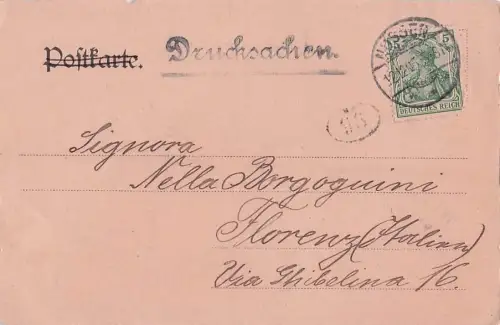 Postkarte. Drucksachen.
5
DEUTSCHES REICH
Signora
Nella Borgoguini
Florenz (Italien)
Via Ghibelina 16.